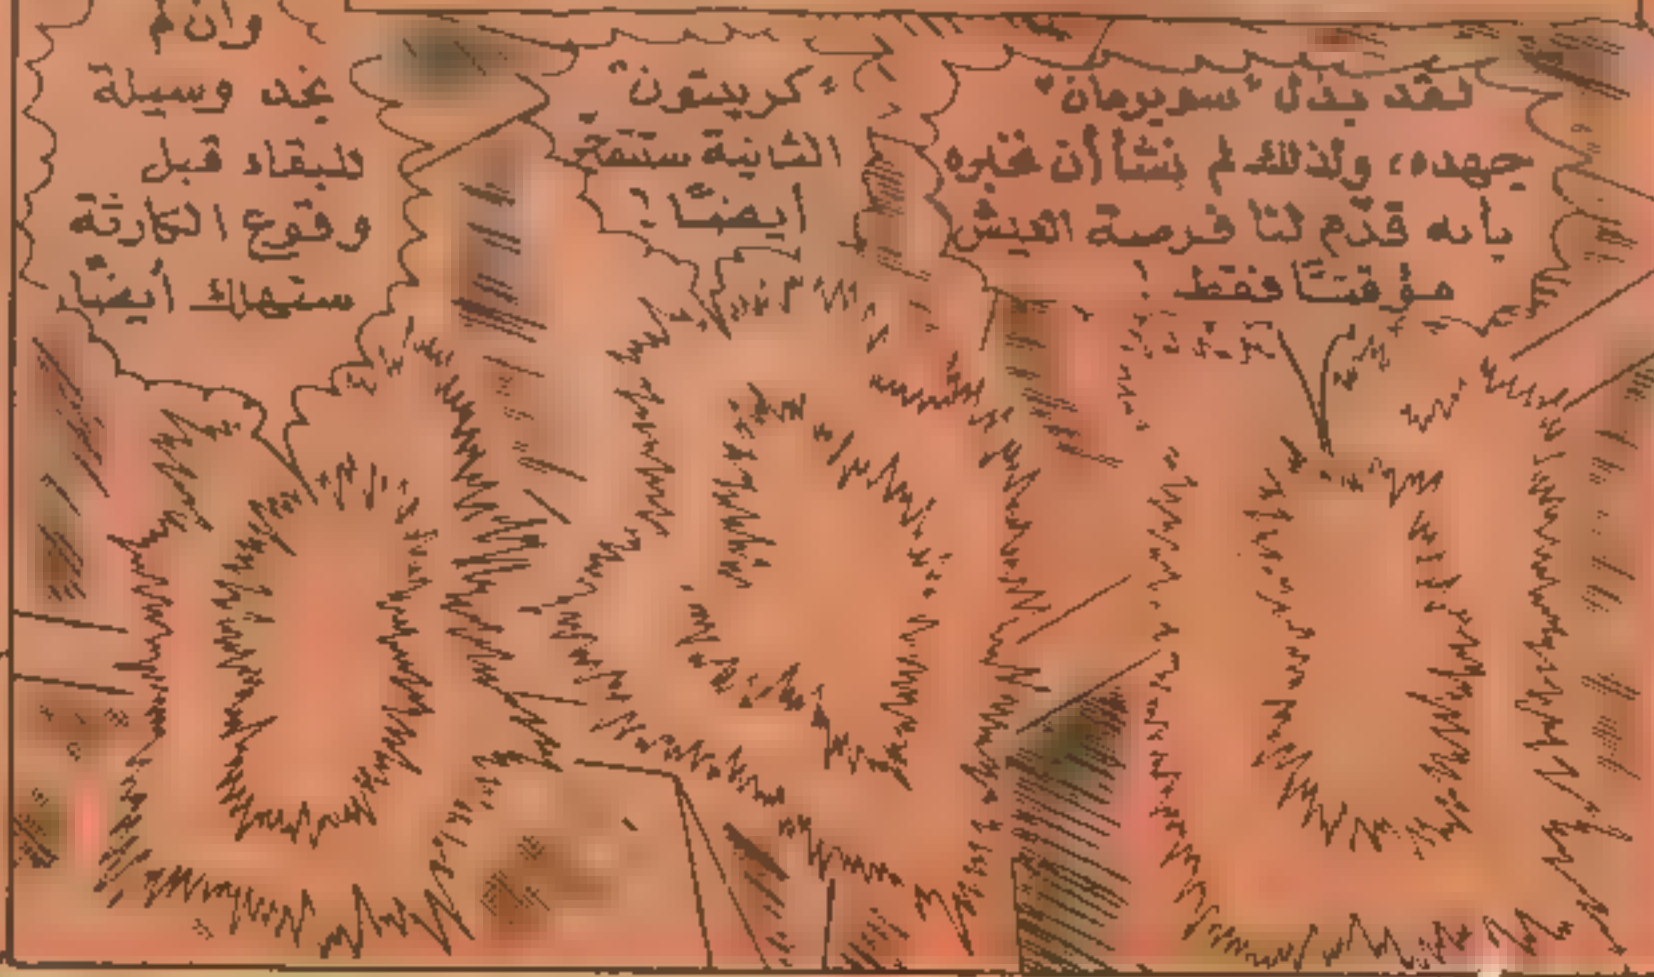 لقد بذل "سوبرمان"
جهده، ولذلك لم نشأ أن نخبره
بأنه قدّم لنا فرصة العيش
مؤقتًا فقط !
"كريبتون"
الثانية ستنفجر
أيضًا !
وان لم
نجد وسيلة
للبقاء قبل
وقوع الكارثة
سنهلك أيضًا